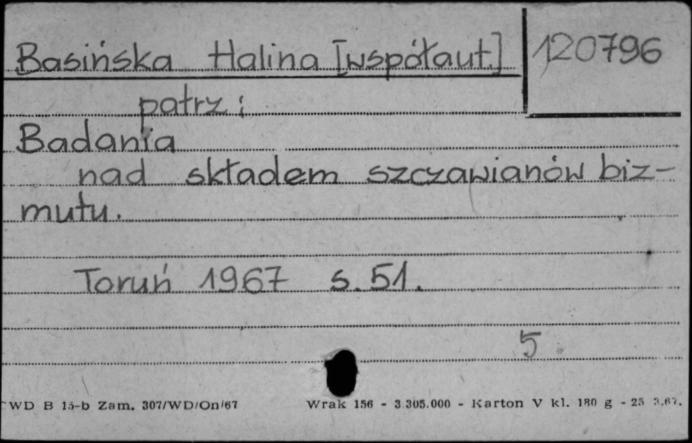 Basińska Halina [współaut.] 120796
patrz:
Badania
nad składem szczawianów biz-
mutu.
Toruń 1967 s. 51.
5
WD B 15-b Zam. 307/WD/On/67 Wrak 156 - 3.305.000 - Karton V kl. 180 g - 25 3.67.